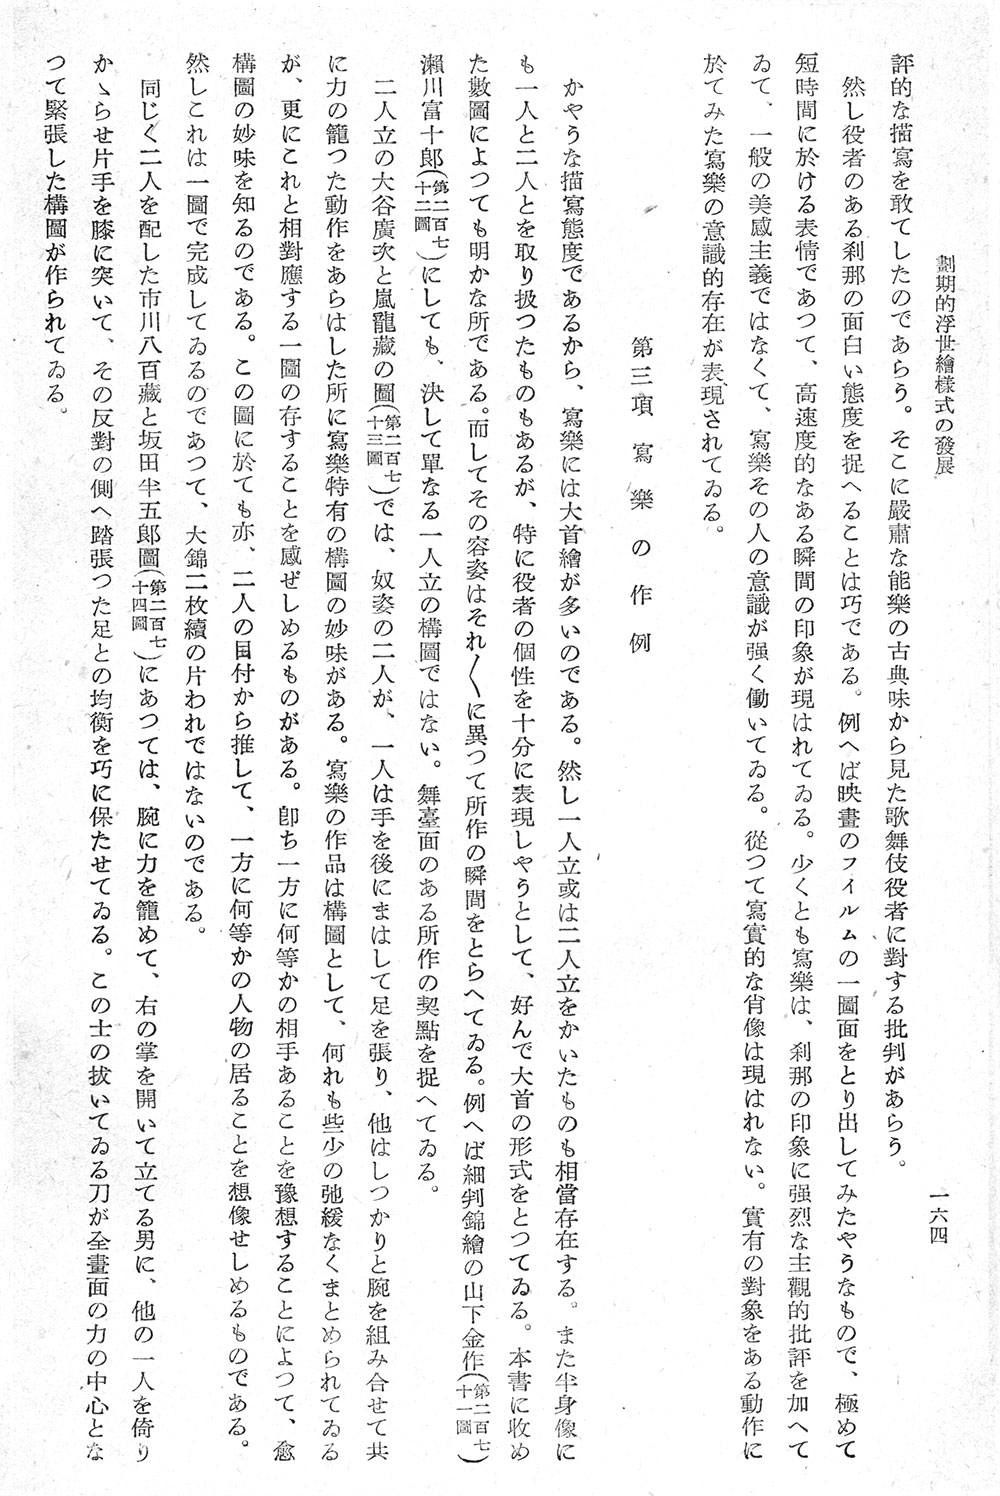 劃期的浮世繪樣式の發展
一六四
評的な描寫を敢てしたのであらう。そこに嚴肅な能樂の古典味から見た歌舞伎役者に對する批判があらう。
然し役者のある刹那の面白い態度を捉へることは巧である。例へば映畫のフイルムの一圖面をとり出してみたやうなもので、極めて
短時間に於ける表情であつて、高速度的なある瞬間の印象が現はれてゐる。少くとも寫樂は、刹那の印象に强烈な主觀的批評を加へて
ゐて、一般の美感主義ではなくて、寫樂その人の意識が强く働いてゐる。從つて寫實的な肖像は現はれない。實有の對象をある動作に
於てみた寫樂の意識的存在が表現されてゐる。
第三項 寫樂の作例
かやうな描寫態度であるから、寫樂には大首繪が多いのである。然し一人立或は二人立をかいたものも相當存在する。また半身像に
も一人と二人とを取り扱つたものもあるが、特に役者の個性を十分に表現しやうとして、好んで大首の形式をとつてゐる。本書に收め
た數圖によつても明かな所である。而してその容姿はそれ〱に異つて所作の瞬間をとらへてゐる。例へば細判錦繪の山下金作(第二百七十一圖)
瀨川富十郎(第二百七十二圖)にしても、決して單なる一人立の構圖ではない。舞臺面のある所作の契點を捉へてゐる。
二人立の大谷廣次と嵐龍藏の圖(第二百七十三圖)では、奴姿の二人が、一人は手を後にまはして足を張り、他はしつかりと腕を組み合せて共
に力の籠つた動作をあらはした所に寫樂特有の構圖の妙味がある。寫樂の作品は構圖として、何れも些少の弛緩なくまとめられてゐる
が、更にこれと相對應する一圖の存することを感ぜしめるものがある。卽ち一方に何等かの相手あることを豫想することによつて、愈
構圖の妙味を知るのである。この圖に於ても亦、二人の目付から推して、一方に何等かの人物の居ることを想像せしめるものである。
然しこれは一圖で完成してゐるのであつて、大錦二枚續の片われではないのである。
同じく二人を配した市川八百藏と坂田半五郎圖(第二百七十四圖)にあつては、腕に力を籠めて、右の掌を開いて立てる男に、他の一人を倚り
かゝらせ片手を膝に突いて、その反對の側へ踏張つた足との均衡を巧に保たせてゐる。この士の拔いてゐる刀が全畫面の力の中心とな
つて緊張した構圖が作られてゐる。